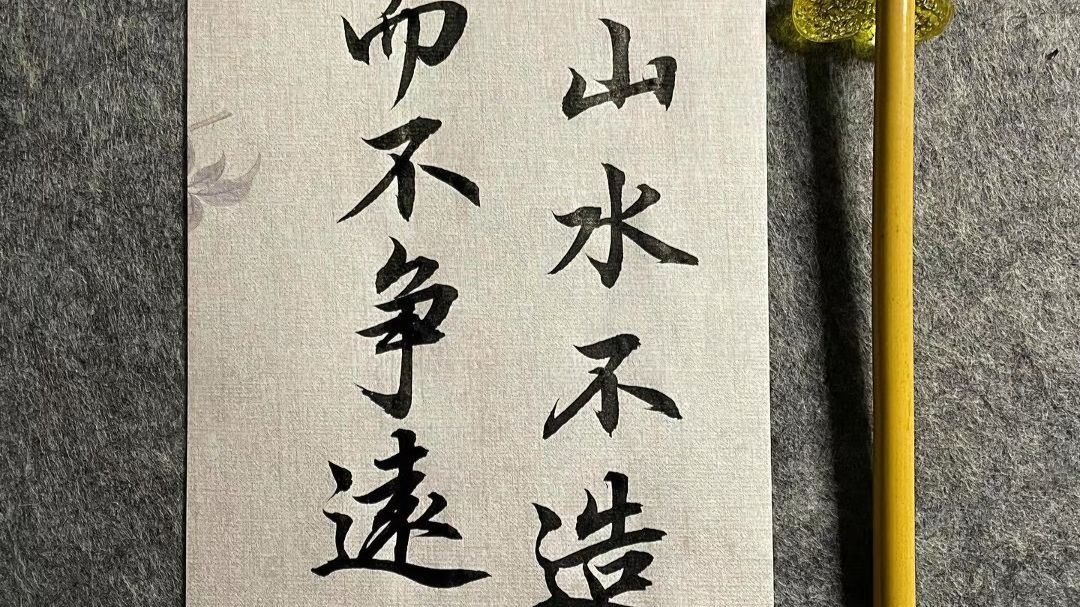 山水不造
而不争遠